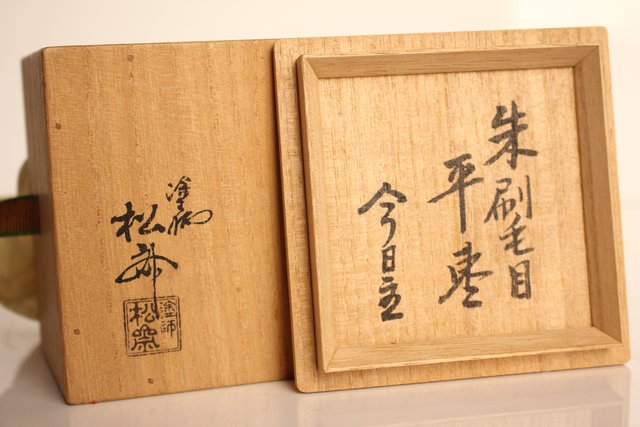 朱刷毛目
平棗
今日主
塗師
松斎
塗師
松斎